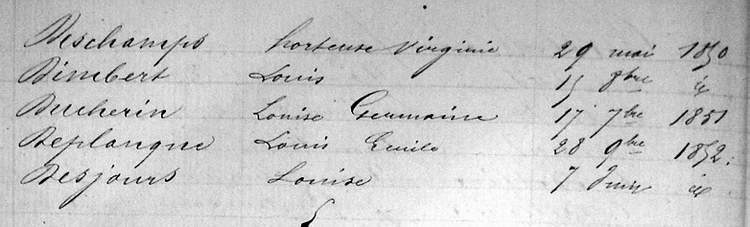 Deschamps hortense Virginie 29 mai 1850
Dimbert Louis 15 8bre id
Ducherin Louise Germaine 17 7bre 1851
Deplanque Louis Emile 28 9bre 1852.
Desjours Louise 7 Juin id